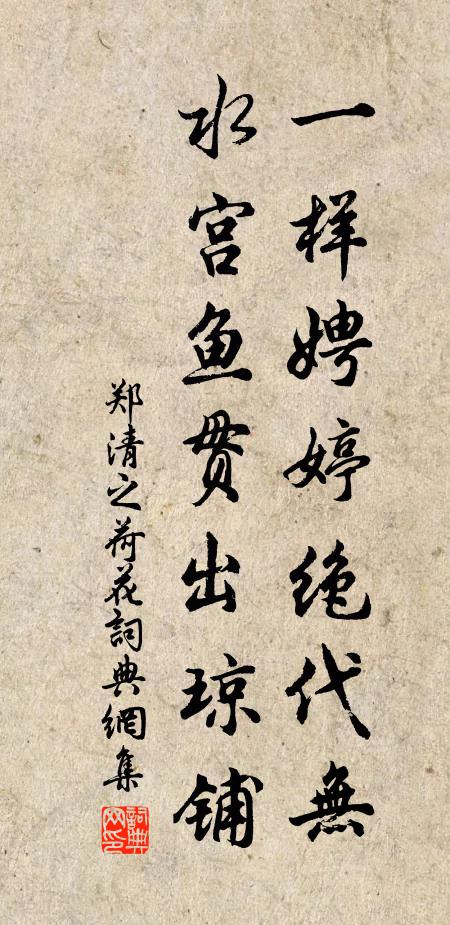 一样娉婷绝代無
水宫鱼贯出琼铺
郑清之荷花詞典網集
詞典网印